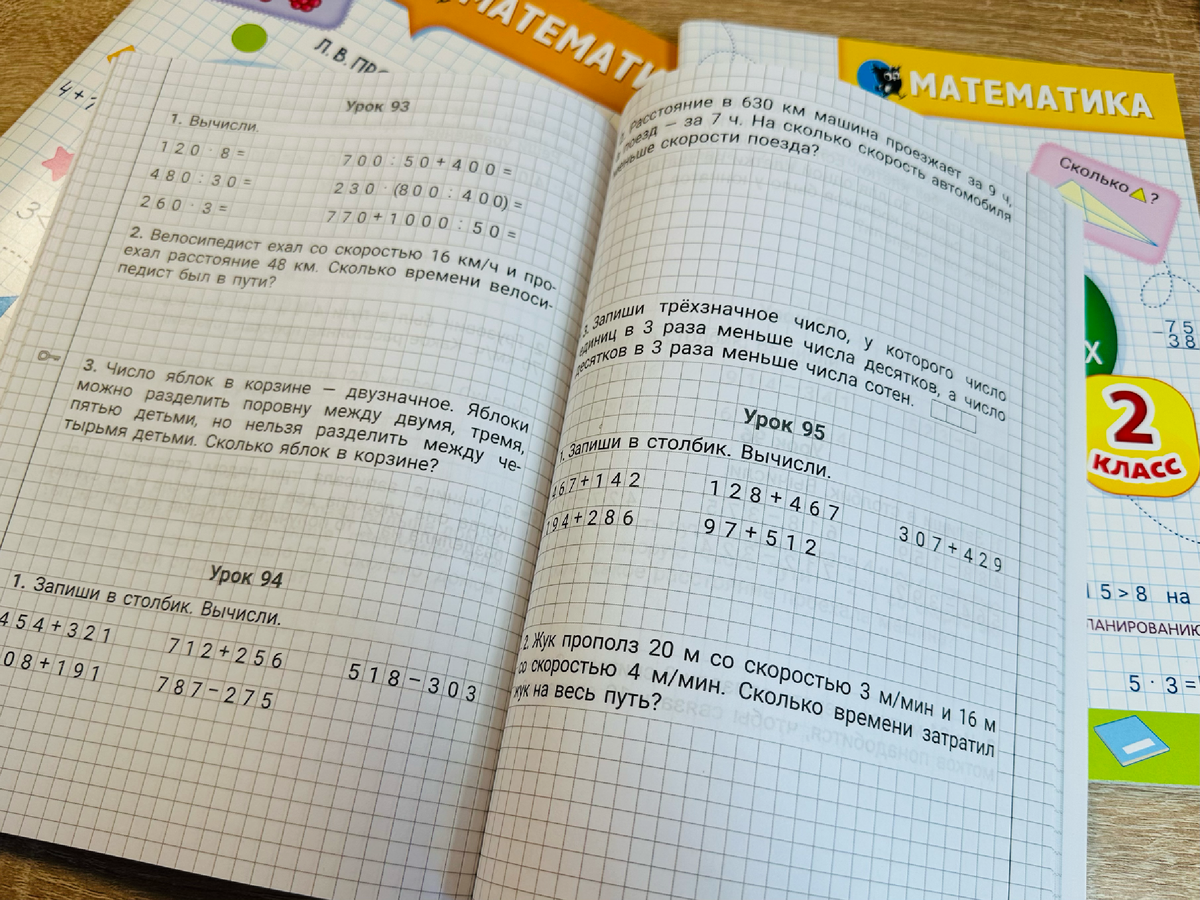 МАТЕМАТИ
Л. В. ПРО
4+
Урок 93
1. Вычисли.
120·8=
700:50+400=
480:30=
230·(800:400)=
260·3=
770+1000:50=
2. Велосипедист ехал со скоростью 16 км/ч и про-
ехал расстояние 48 км. Сколько времени велоси-
педист был в пути?
3. Число яблок в корзине — двузначное. Яблоки
можно разделить поровну между двумя, тремя,
пятью детьми, но нельзя разделить между че-
тырьмя детьми. Сколько яблок в корзине?
Урок 94
1. Запиши в столбик. Вычисли.
454+321
712+256
518−303
08+191
787−275
Расстояние в 630 км машина проезжает за 9 ч,
а поезд — за 7 ч. На сколько скорость автомобиля
меньше скорости поезда?
3. Запиши трёхзначное число, у которого число
единиц в 3 раза меньше числа десятков, а число
десятков в 3 раза меньше числа сотен.
Урок 95
1. Запиши в столбик. Вычисли.
467+142
128+467
307+429
194+286
97+512
2. Жук прополз 20 м со скоростью 3 м/мин и 16 м
со скоростью 4 м/мин. Сколько времени затратил
жук на весь путь?
МАТЕМАТИКА
Сколько ?
−75
38
Х
2
КЛАСС
15>8 на
ПЛАНИРОВАНИЮ
5·3=